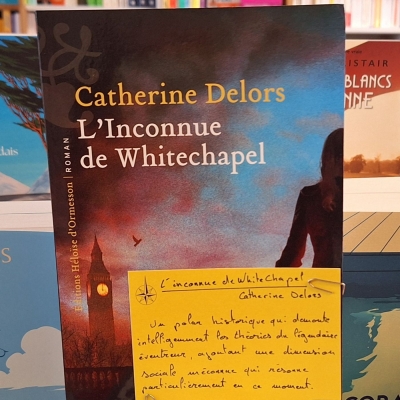 Catherine Delors
L'Inconnue
de Whitechapel
Éditions Héloïse d'Ormesson | ROMAN
L'inconnue de WhiteChapel
Catherine Delors
Un polar historique qui démonte
intelligemment les théories du légendaire
éventreur, ajoutant une dimension
sociale méconnue qui résonne
particulièrement en ce moment.
ISTAIR
BLANCS
NNE
dais
S
CORA